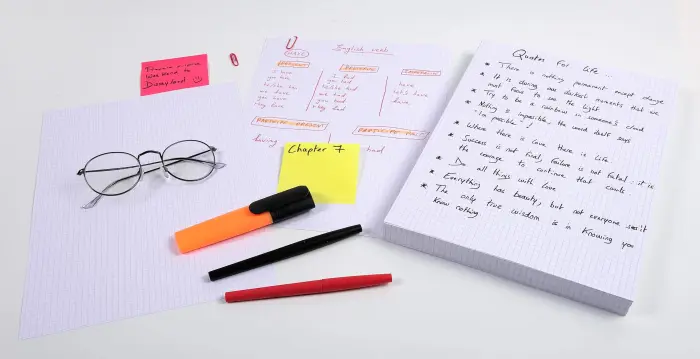 was kend to
Disneyland
English verb
PRESENT
I have
you have
we have
you have
they have
I had
you had
we had
you had
they had
have
let's have
have
having
had
Chapter 7
Quotes For Life ...
* There is nothing permanent except change
* It is during our darkest moments that we
must focus to see the light
* Try to be a rainbow in someone's cloud
* Nothing is impossible, the word itself says
"I'm possible"!
* Where there is love there is life.
* Success is not final, failure is not fatal: it is
the courage to continue that counts
* Do all things with love
* Everything has beauty, but not everyone sees it
* The only true wisdom is in knowing you
know nothing